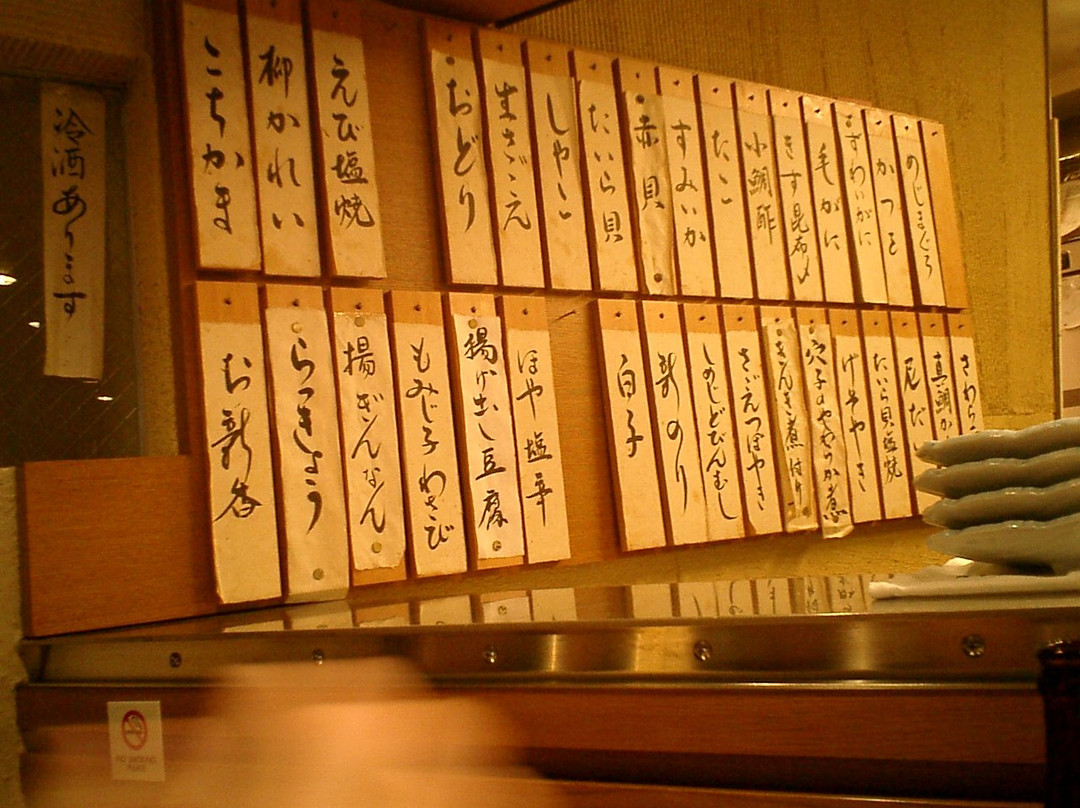 めじまぐろ
かつを
ずわいがに
毛がに
きす昆布〆
小鯛酢
たこ
すみいか
赤貝
たいら貝
しゃこ
生さざえ
おどり
えび塩焼
柳かれい
こちかま
さわら
真鯛か
尼だい
たいら貝塩焼
げそやき
穴子のやわらか煮
きんき煮付け
さざえつぼやき
しめじどびんむし
新のり
白子
ほや塩辛
揚げ出し豆腐
もみじ子わさび
揚ぎんなん
らっきょう
お新香
冷酒あります
NO SMOKING
PLEASE